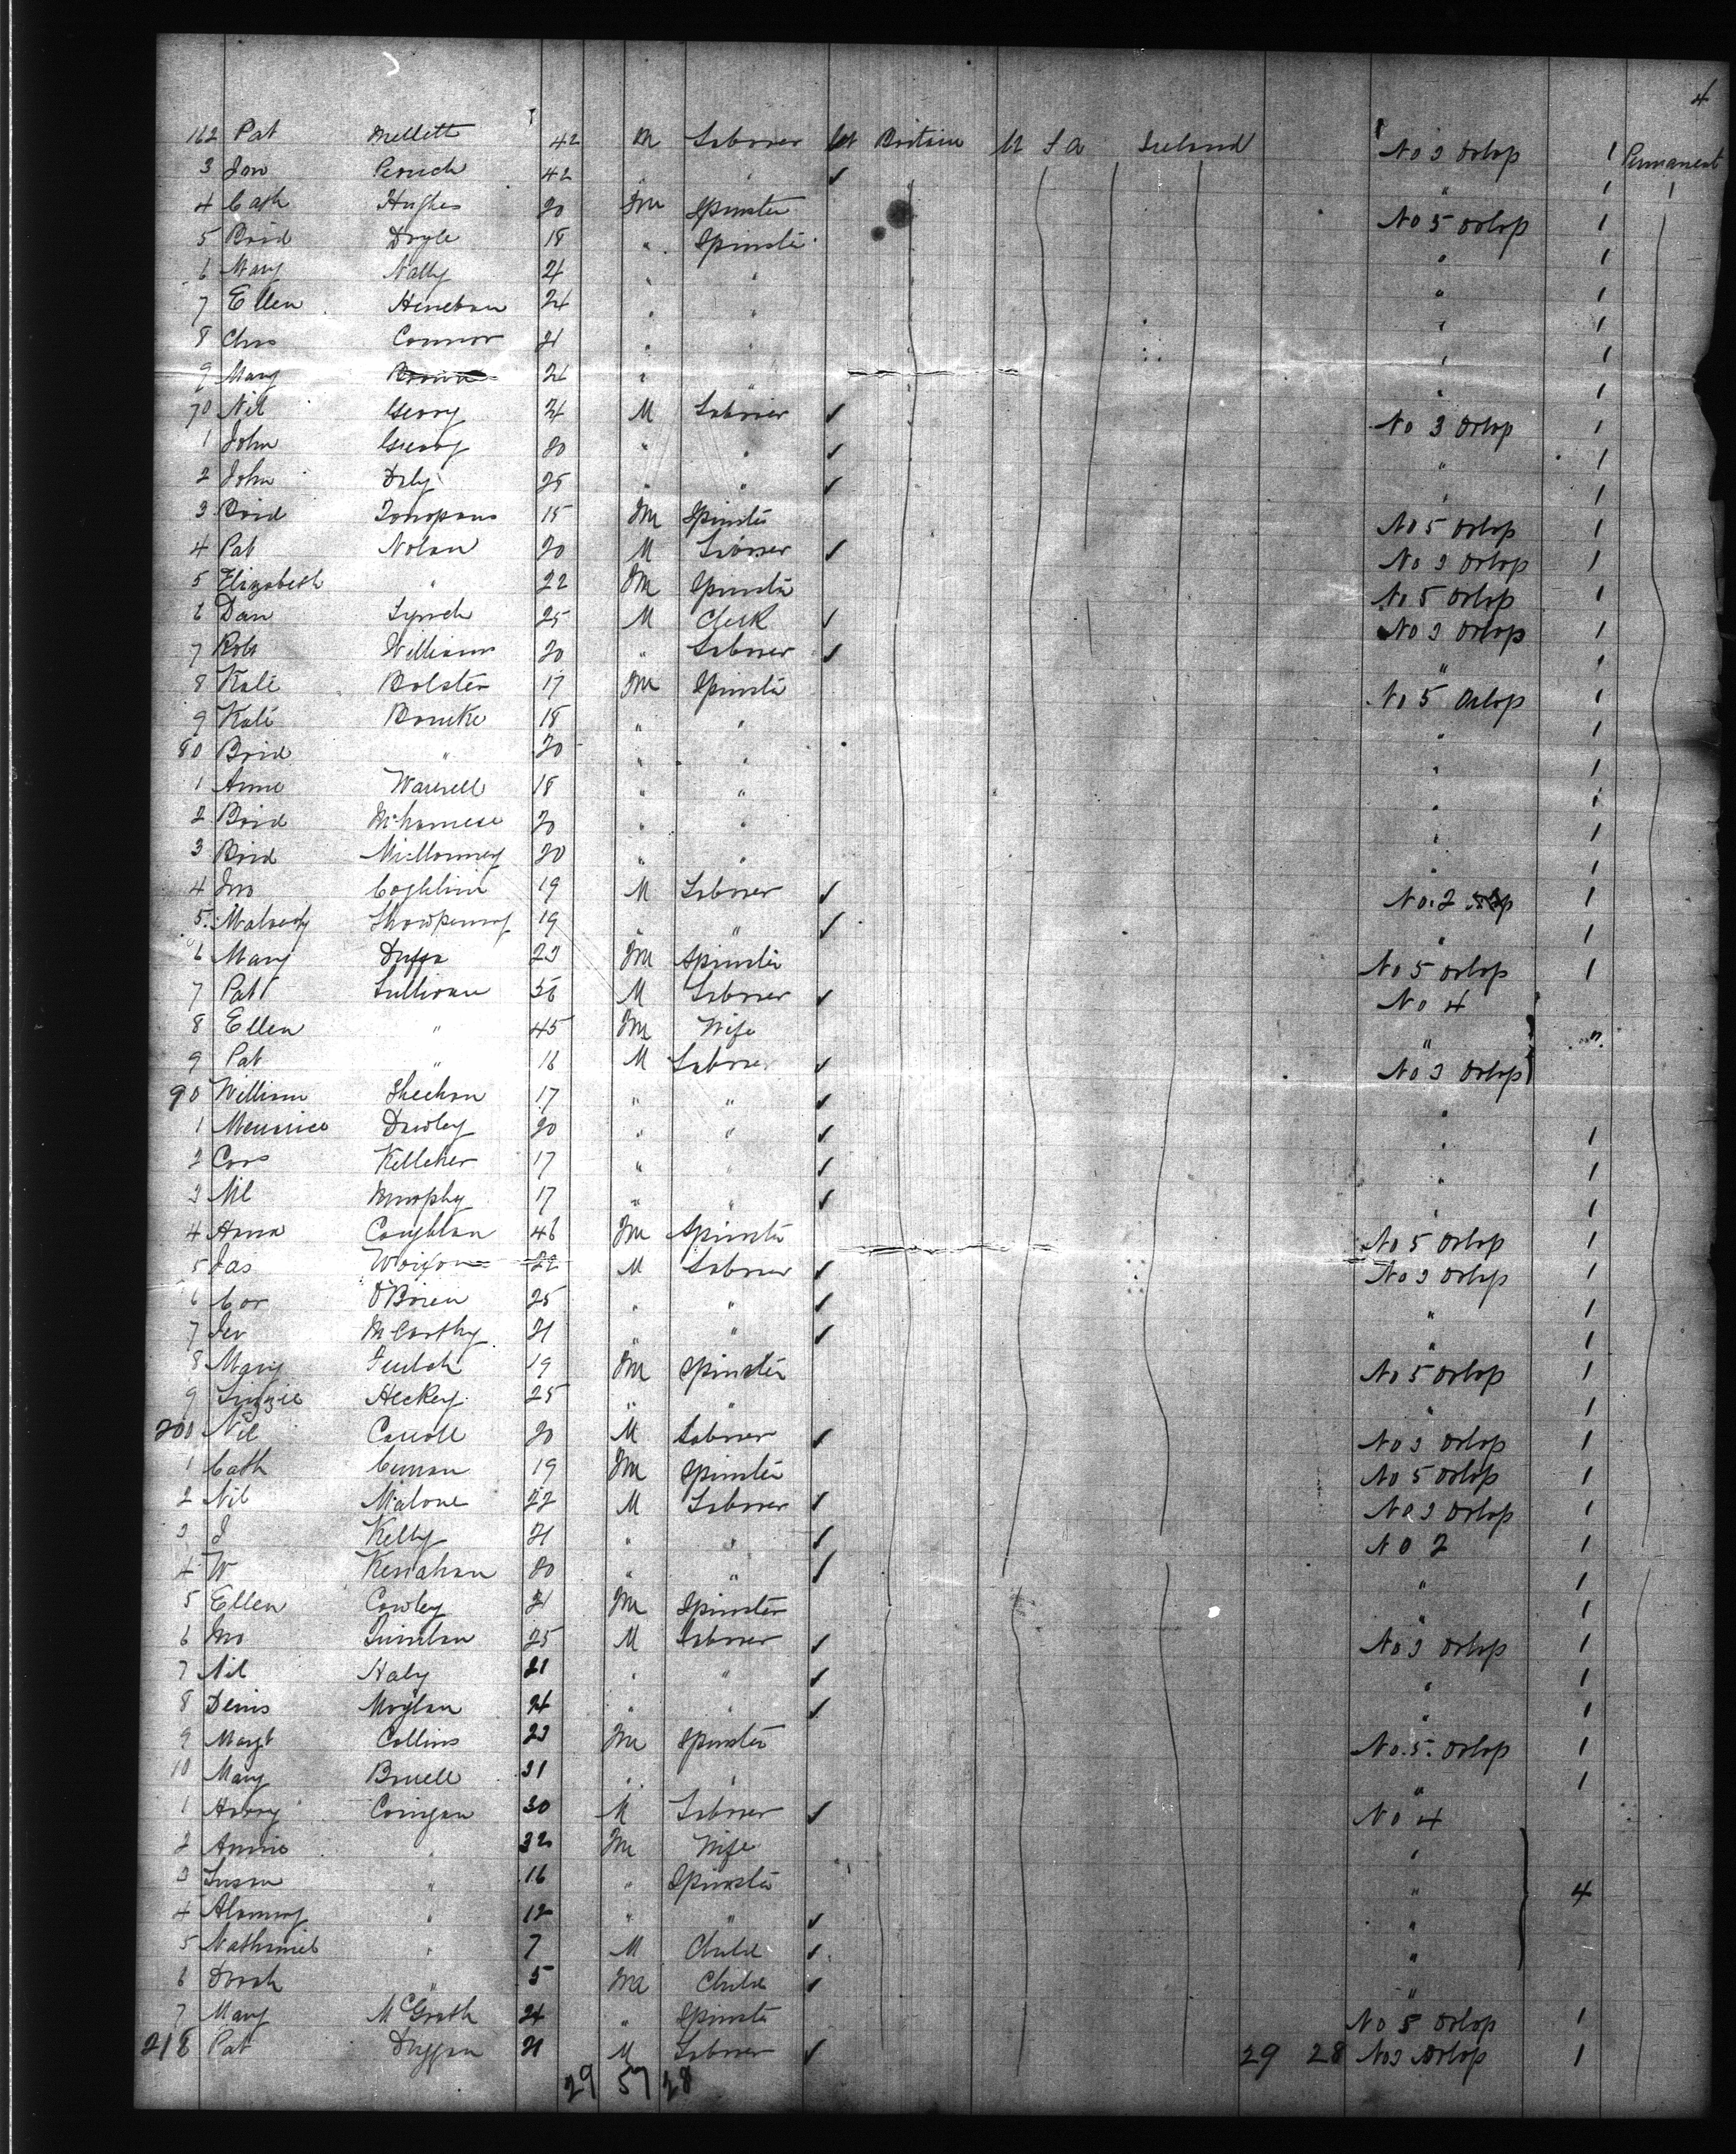 4
162 Pat Mellett 42 M Laborer Gt Britain U S A Ireland No 3 Orlop 1 Permanent
3 42 " " " 1 1
4 Cath Hughes 20 Fm Spinster No 5 Orlop 1
5 Brid Doyle 18 " Spinster " 1
6 Mary Nally 24 " " " 1
7 Ellen Heneban 24 " " " 1
8 Connor 21 " " " 1
9 Mary 24 " " " 1
70 Geory 24 M Laborer No 3 Orlop 1
1 John 20 " " " 1
2 John Daly 25 " " " 1
3 Brid 15 Fm Spinster No 5 Orlop 1
4 Pat Nolan 20 M Laborer No 3 Orlop 1
5 Elizabeth " 22 Fm Spinster No 5 Orlop 1
6 Dan Lynch 25 M Clerk No 3 Orlop 1
7 Robt Williams 20 " Laborer " 1
8 Kate Bolster 17 Fm Spinster No 5 Orlop 1
9 Kate Bourke 18 " " " 1
80 Brid " 20 " " " 1
1 Anne 18 " " " 1
2 Brid 20 " " " 1
3 Brid 20 " " " 1
4 Jno Coghlin 19 M Laborer No. 2 1
5 19 " " " 1
6 Mary 23 Fm Spinster No 5 Orlop 1
7 Pat Sullivan 56 M Laborer No 4
8 Ellen " 45 Fm Wife " "
9 Pat " 16 M Laborer No 3 Orlop
90 William Sheehan 17 " " "
1 Maurice Dawley 20 " " " 1
2 Cors Kelleher 17 " " " 1
3 Ml Murphy 17 " " " 1
4 Anna Coughlan 46 Fm Spinster No 5 Orlop 1
5 Jas 22 M Laborer No 3 Orlop 1
6 Cor O'Brien 25 " " " 1
7 Jer McCarthy 21 " " " 1
8 Mary 19 Fm Spinster No 5 Orlop 1
9 Lizzie Heckey 25 " " " 1
200 Carroll 20 M Laborer No 3 Orlop 1
1 Cath Curran 19 Fm Spinster No 5 Orlop 1
2 Malone 22 M Laborer No 3 Orlop 1
3 J Kelly 21 " " No 2 1
4 W 20 " " " 1
5 Ellen Cowley 21 Fm Spinster " 1
6 Jno Quinlan 25 M Laborer No 3 Orlop 1
7 Haly 21 " " " 1
8 Denis Moylan 24 " " " 1
9 Margt Collins 23 Fm Spinster No. 5. Orlop 1
10 Mary 21 " " " 1
1 Harry Corrigan 30 M Laborer No 4
2 Annie " 32 Fm Wife "
3 Susan " 16 " Spinster " 4
4 " 12 " " "
5 Nathaniel " 7 M Child "
6 Dorah " 5 Fm Child "
7 Mary McGrath 24 " Spinster No 5 Orlop 1
218 Pat Duggan 21 M Laborer 29 28 No 3 Orlop 1
29 57 28